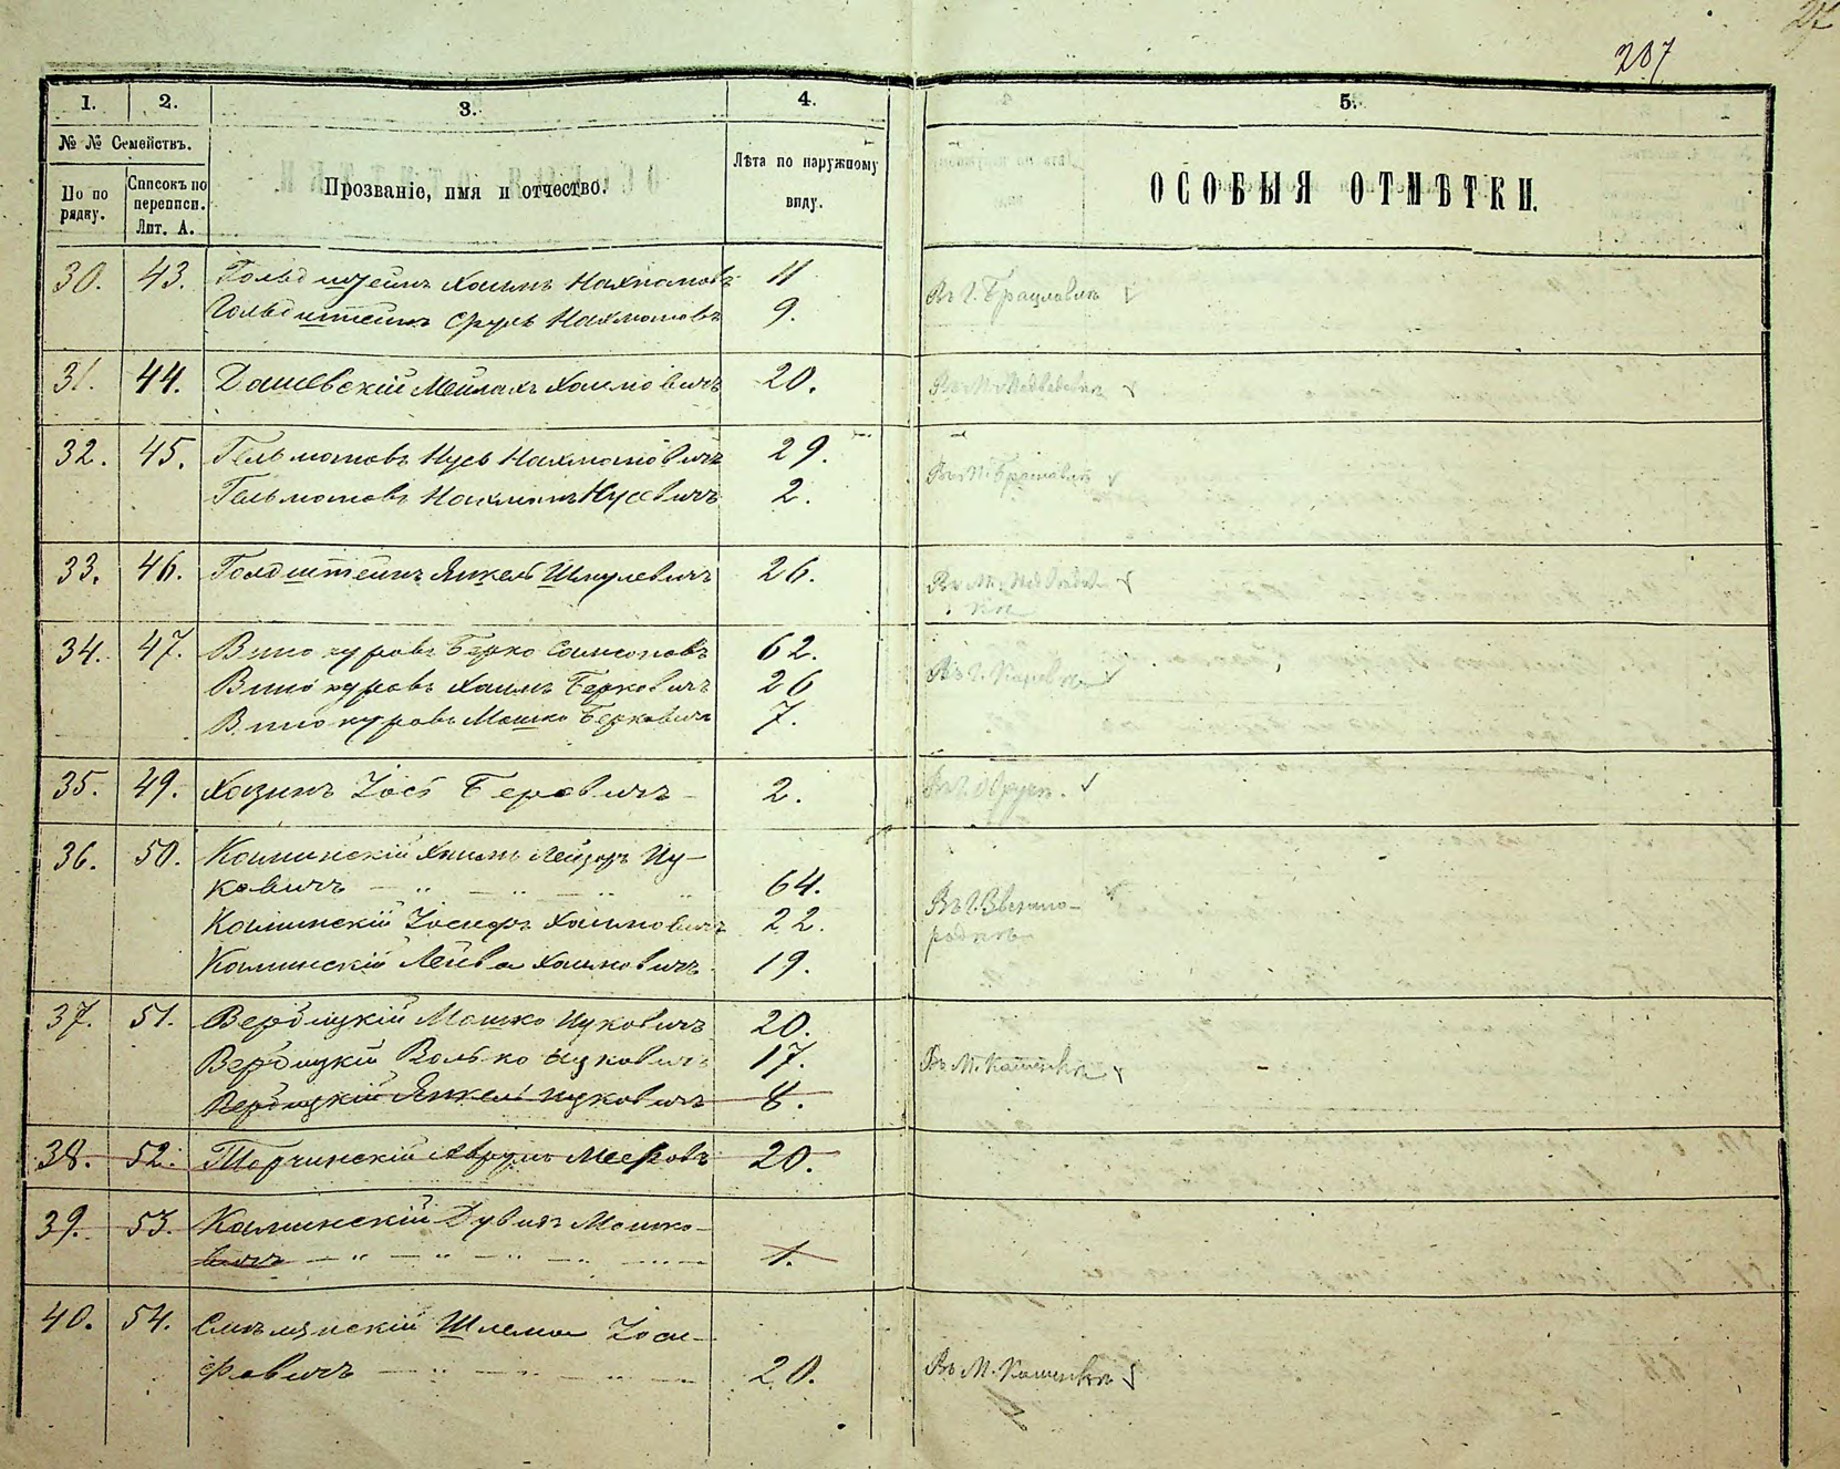 27
207
1. 2. 3. 4. 5.
№ № Семействъ.
По по рядку.
Списокъ по переписи. Лит. А.
Прозваніе, имя и отчество.
Лѣта по наружному виду.
ОСОБЫЯ ОТМѢТКИ.
30. 43. Гольдштейнъ Хаимъ Нахмановъ 11
Гольдштейнъ Сруль Нахмановъ 9.
Въ г. Брацлавлѣ
31. 44. Дашевскій Мейлахъ Хаимовичъ 20.
Въ м.
32. 45. Гельмановъ Нусь Нахмановичъ 29.
Гельмановъ Нахманъ Нусевичъ 2.
Въ
33. 46. Голдштейнъ Янкель Шмулевичъ 26.
Въ м.
34. 47. Винокуровъ Берко Самсоновъ 62.
Винокуровъ Хаимъ Берковичъ 26
Винокуровъ Мошко Берковичъ 7.
Въ г.
35. 49. Хазинъ Іось Беровичъ 2.
Въ г.
36. 50. Каминскій Хаимъ Лейзоръ Иц-
ковичъ 64.
Каминскій Іосифъ Хаимовичъ 22.
Каминскій Лейба Хаимовичъ 19.
Въ г. Звенино-
родкѣ
37. 51. Вербицкій Мошко Ицковичъ 20.
Вербицкій Волько Ицковичъ 17.
Вербицкій Янкель Ицковичъ 8.
Въ м.
38. 52. Торчинскій Аврумъ Мееровъ 20.
39. 53. Каминскій Дувидъ Мошко-
вичъ 1.
40. 54. Смѣлянскій Шлема Іоси-
фовичъ 20.
Въ м.